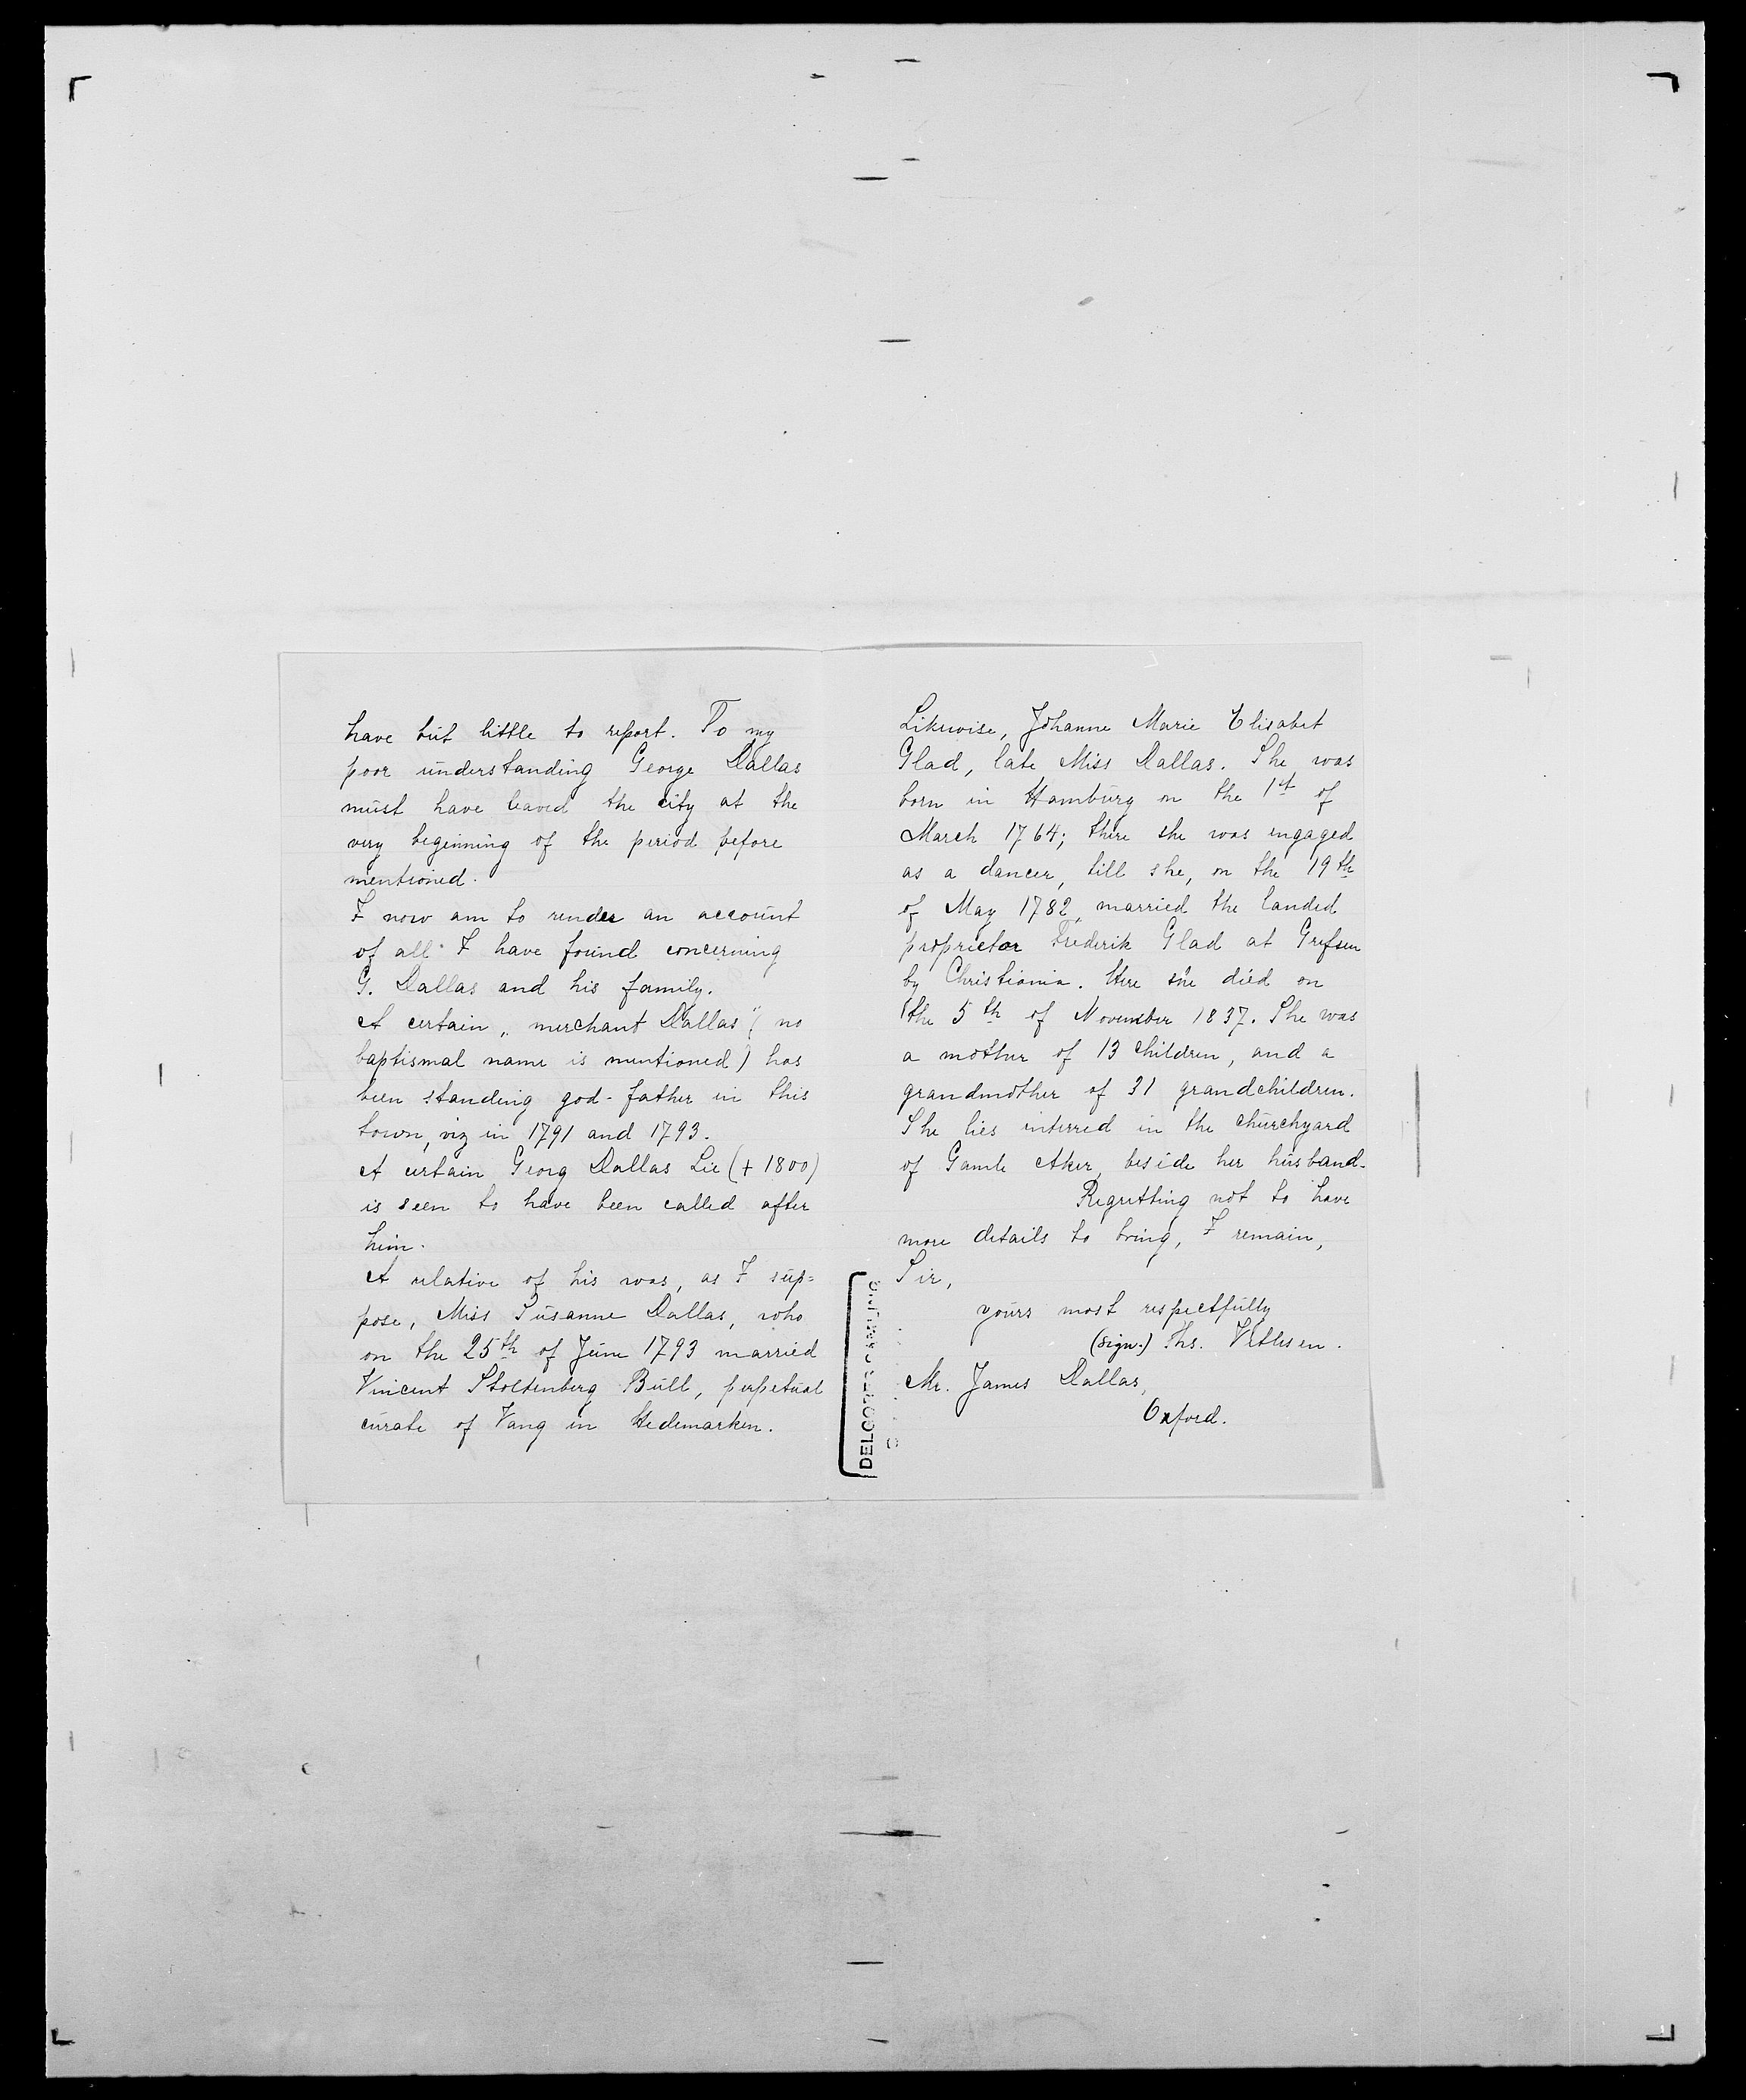 have but little to report. To my
poor understanding George Dallas
must have leaved the city at the
very beginning of the period before
mentioned.
I now am to render an account
of all I have found concerning
G. Dallas and his family.
A certain „merchant Dallas" (no
baptismal name is mentioned) has
been standing god-father in this
town, viz in 1791 and 1793.
A certain Georg Dallas Lie (+ 1800)
is seen to have been called after
him.
A relative of his was, as I sup=
pose, Miss Susanne Dallas, who
on the 25th of June 1793 married
Vincent Stoltenberg Bull, perpetual
curate of Vang in Hedemarken.
Likewise, Johanne Marie Elisabet
Glad, late Miss Dallas. She was
born in Hamburg on the 1st of
March 1764; there she was engaged
as a dancer, till she, on the 19th
of May 1782, married the landed
proprietor Frederik Glad at Grefsen
by Christiania. Here she died on
the 5th of November 1837. She was
a mother of 13 children, and a
grandmother of 31 grandchildren.
She lies interred in the churchyard
of Gamle Aker, beside her husband.
Regretting not to have
more details to bring, I remain,
Sir,
yours most respectfully
(sign.) Ths. Vetlesen.
Mr. James Dallas,
Oxford.